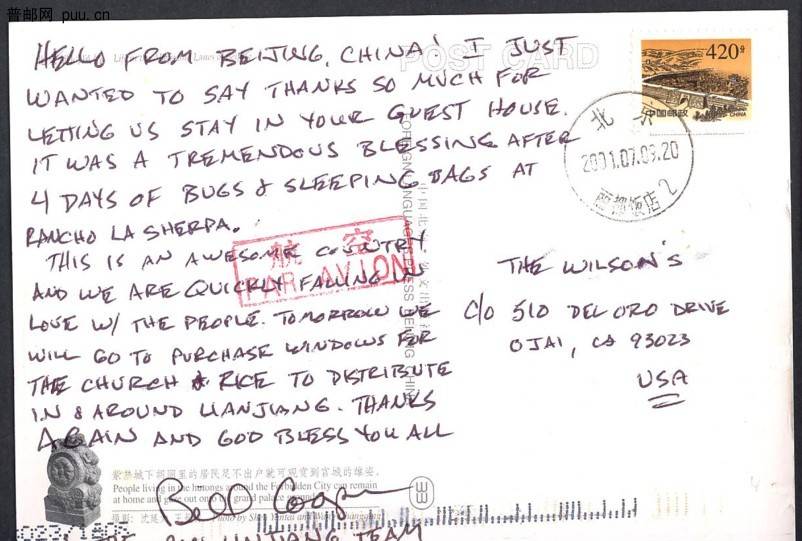 普邮网 puu.cn
POST CARD
HELLO FROM BEIJING, CHINA! I JUST
WANTED TO SAY THANKS SO MUCH FOR
LETTING US STAY IN YOUR GUEST HOUSE.
IT WAS A TREMENDOUS BLESSING AFTER
4 DAYS OF BUGS & SLEEPING BAGS AT
RANCHO LA SHERPA.
THIS IS AN AWESOME COUNTRY
AND WE ARE QUICKLY FALLING IN
LOVE W/ THE PEOPLE. TOMORROW WE
WILL GO TO PURCHASE WINDOWS FOR
THE CHURCH & RICE TO DISTRIBUTE
IN & AROUND LIANJIANG. THANKS
AGAIN AND GOD BLESS YOU ALL
Bill
TEAM
航空
PAR AVION
420分
中国邮政
CHINA
北京
2001.07.09.20
THE WILSON'S
C/O 510 DEL ORO DRIVE
OJAI, CA 93023
USA
FOREIGN LANGUAGES PRESS BEIJING CHINA
紫禁城下胡同里的居民足不出户就可观赏到宫城的雄姿。
People living in the hutongs around the Forbidden City can remain
at home and gaze out onto the grand palace
摄影:
Photo by